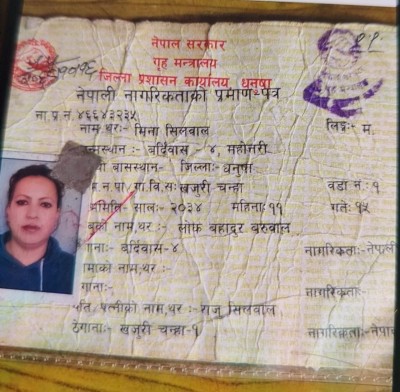 नेपाल सरकार
गृह मन्त्रालय
जिल्ला प्रशासन कार्यालय, धनुषा
नेपाली नागरिकताको प्रमाण-पत्र
ना.प्र.नं. ४६६४३२३५
नाम,थरः- मिना सिलवाल लिङ्गः- म.
जन्मस्थानः- बर्दिवास - ४, महोत्तरी
बासस्थानः- जिल्लाः- धनुषा
न.पा./गा.वि.सः खजुरी चन्हा वडा नं. १
सालः- २०३४ महिनाः ११ गतेः १५
नाम,थरः- लोक बहादुर बरुवाल
बर्दिवास-४ नागरिकताः- नेपाली
नाम,थरः-
नागरिकताः-
पति/पत्नीको नाम,थरः- राजु सिलवाल
ठेगानाः- खजुरी चन्हा-१ नागरिकताः- नेपा